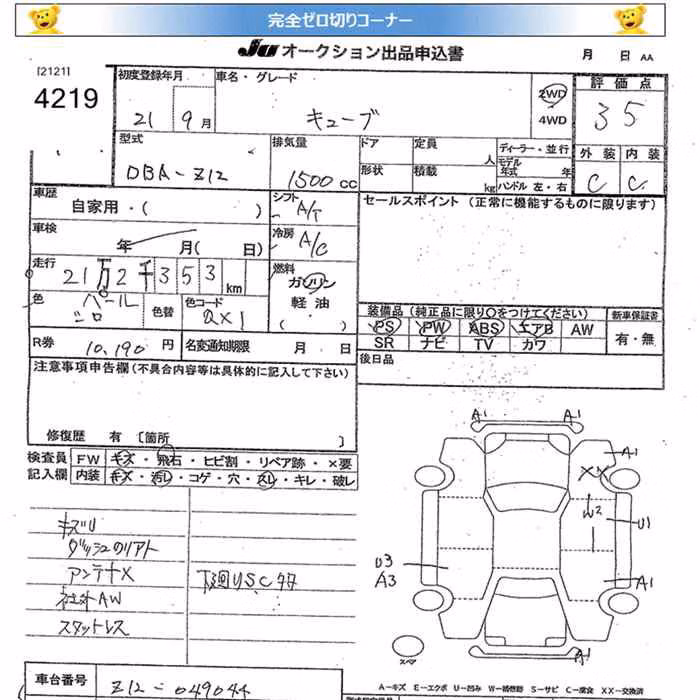 完全ゼロ切りコーナー
JU オークション出品申込書 月 日 AA
[2121]
4219
初度登録年月 車名・グレード 評価点
21 9月 キューブ 2WD 4WD 35
型式 排気量 ドア 定員 人 ディーラー・並行 外装 内装
DBA-Z12 1500cc 形状 積載 kg モデル年式 年 ハンドル 左・右 C C
車歴 シフト セールスポイント (正常に機能するものに限ります)
自家用・( ) A/T
車検 年 月( 日) 冷房 A/C
走行 21万2千353km 燃料 ガソリン
色 パール シロ 色替 色コード QX1 軽油 ( )
装備品 (純正品に限り○をつけてください) 新車保証書
PS PW ABS エアB AW 有・無
SR ナビ TV カワ
R券 10,190円 名変通知期限 月 日 後日品
注意事項申告欄 (不具合内容等は具体的に記入して下さい)
修復歴 有 [箇所 ]
検査員 FW キズ・飛石・ヒビ割・リペア跡・×要
記入欄 内装 キズ・汚れ・コゲ・穴・スレ・キレ・破レ
キズU
ダッシュのリアト
アンテナX
社外AW
スタットレス
下廻りS.Cサタ
A1 A1
A1
XX
W2
U1
U3
A3
A1
A1
スペア
車台番号 Z12-049044
A-キズ E-エクボ U-凹み S-サビ C-腐食 XX-交換済